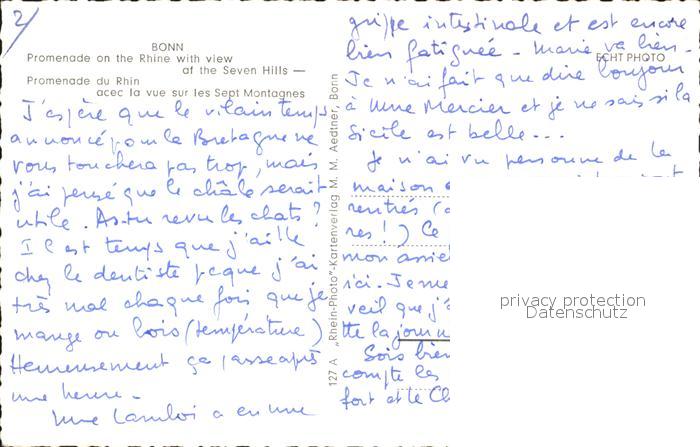 2/
BONN
Promenade on the Rhine with view
of the Seven Hills —
Promenade du Rhin
avec la vue sur les Sept Montagnes
J'espère que le vilain temps
annoncé pour la Bretagne ne
vous touchera pas trop, mais
j'ai pensé que le châle serait
utile. As-tu revu les chats ?
Il est temps que j'aille
chez le dentiste pcque j'ai
très mal chaque fois que je
mange ou bois (température)
Heureusement ça passe après
une heure.
Mme a eu une
127 A „Rhein-Photo"-Kartenverlag M. M. Aedtner, Bonn
grippe intestinale et est encore
bien fatiguée - Marie va bien -
ECHT PHOTO
Je n'ai fait que dire bonjour
à Mme Mercier et je ne sais si la
Sicile est belle...
Je n'ai vu personne de la
maison
rentrés
res !) Ce
mon
ici. Je me
veil que j'
tte la
Sois bien
compte les
fort et le
privacy protection
Datenschutz